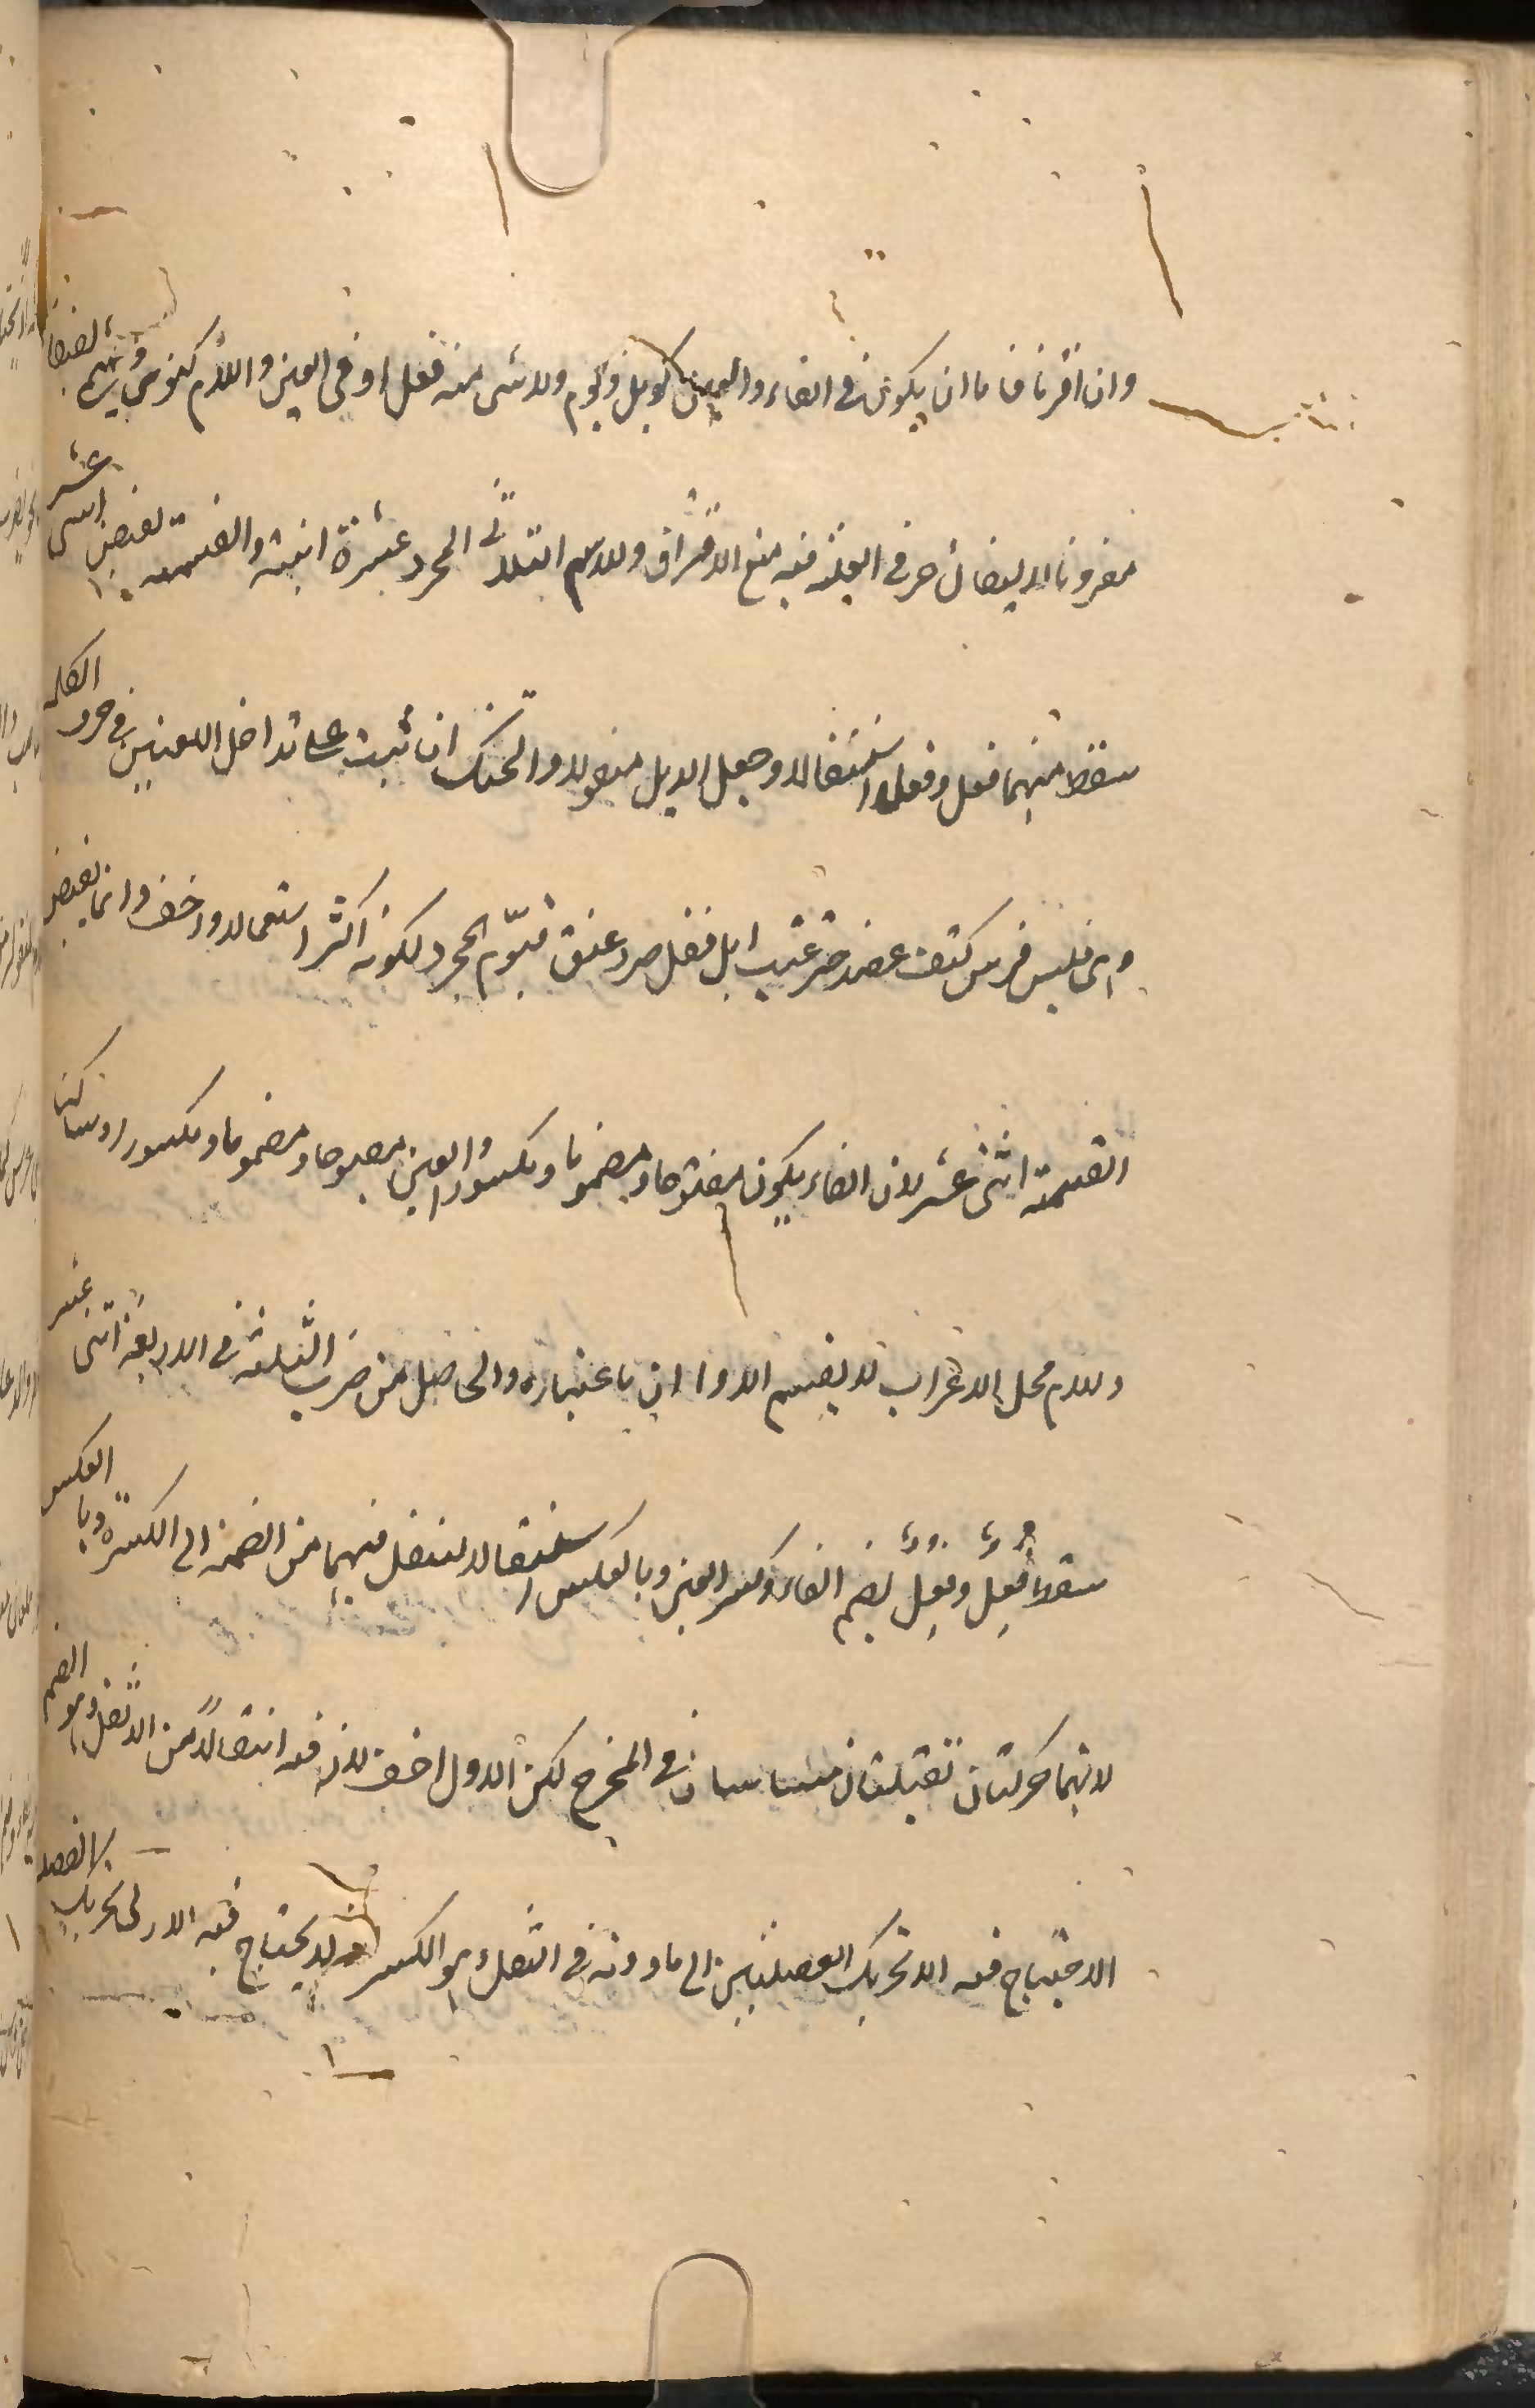 وان اقترنا فاما ان يكون في الفاء والعين كويل ويوم ولا يبنى منه فعل او في العين واللام كنوى ويسمى لفيفا
مقرونا لاتصال حرفي العلة فيه منع الافتراق وللاسم الثلاثي المجرد عشرة ابنية والقسمة تقتضي اثنى عشر
سقط منهما فعل وفعل استثقالا وجعل الدئل منقولا والحبك ان ثبت على تداخل اللغتين في حرفي الكلمة
وهى فلس فرس كتف عضد حبر عنب ابل قفل صرد عنق قدّم المجرد لكونه اكثر استعمالا واخف وانما يقتضي
القسمة اثنى عشر لان الفاء يكون مفتوحا ومضموما ومكسورا والعين مفتوحا ومضموما ومكسورا وساكنا
واللام محل الاعراب لا يقسم الاوزان باعتباره والحاصل من ضرب الثلثة في الاربعة اثنى عشر
سقط فُعِل وفِعُل بضم الفاء وكسر العين وبالعكس استثقالا لنقل فيهما من الضمة الى الكسرة وبالعكس
لانهما حركتان ثقيلتان متباينتان في المخرج لكن الاول اخف لان فيه انتقالاً من الاثقل وهو الضم
الاحتياج فيه الا تحريك العضلتين الى ما دونه في الثقل وهو الكسر ولا يحتاج فيه الا الى تحريك العضلة